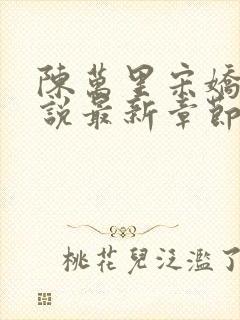 陳萬里宋嬌
說最新章節
桃花兒泛濫了